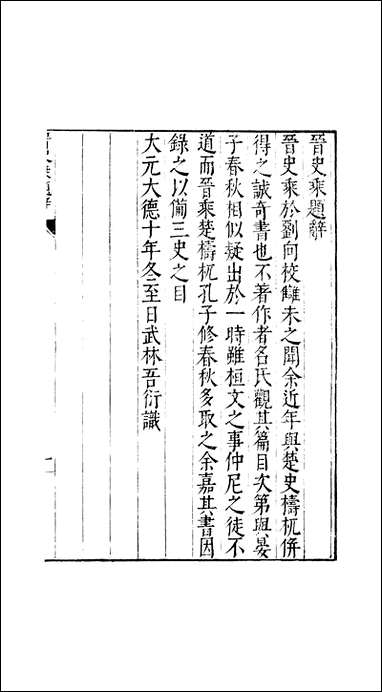 晉史乘題辭
晉史乘於劉向校讎未之聞余近年與楚史檮杌併
得之誠奇書也不著作者名氏觀其篇目次第與晏
子春秋相似疑出於一時雖桓文之事仲尼之徒不
道而晉乘楚檮杌孔子修春秋多取之余嘉其書因
錄之以僃三史之目
大元大德十年冬至日武林吾衍識